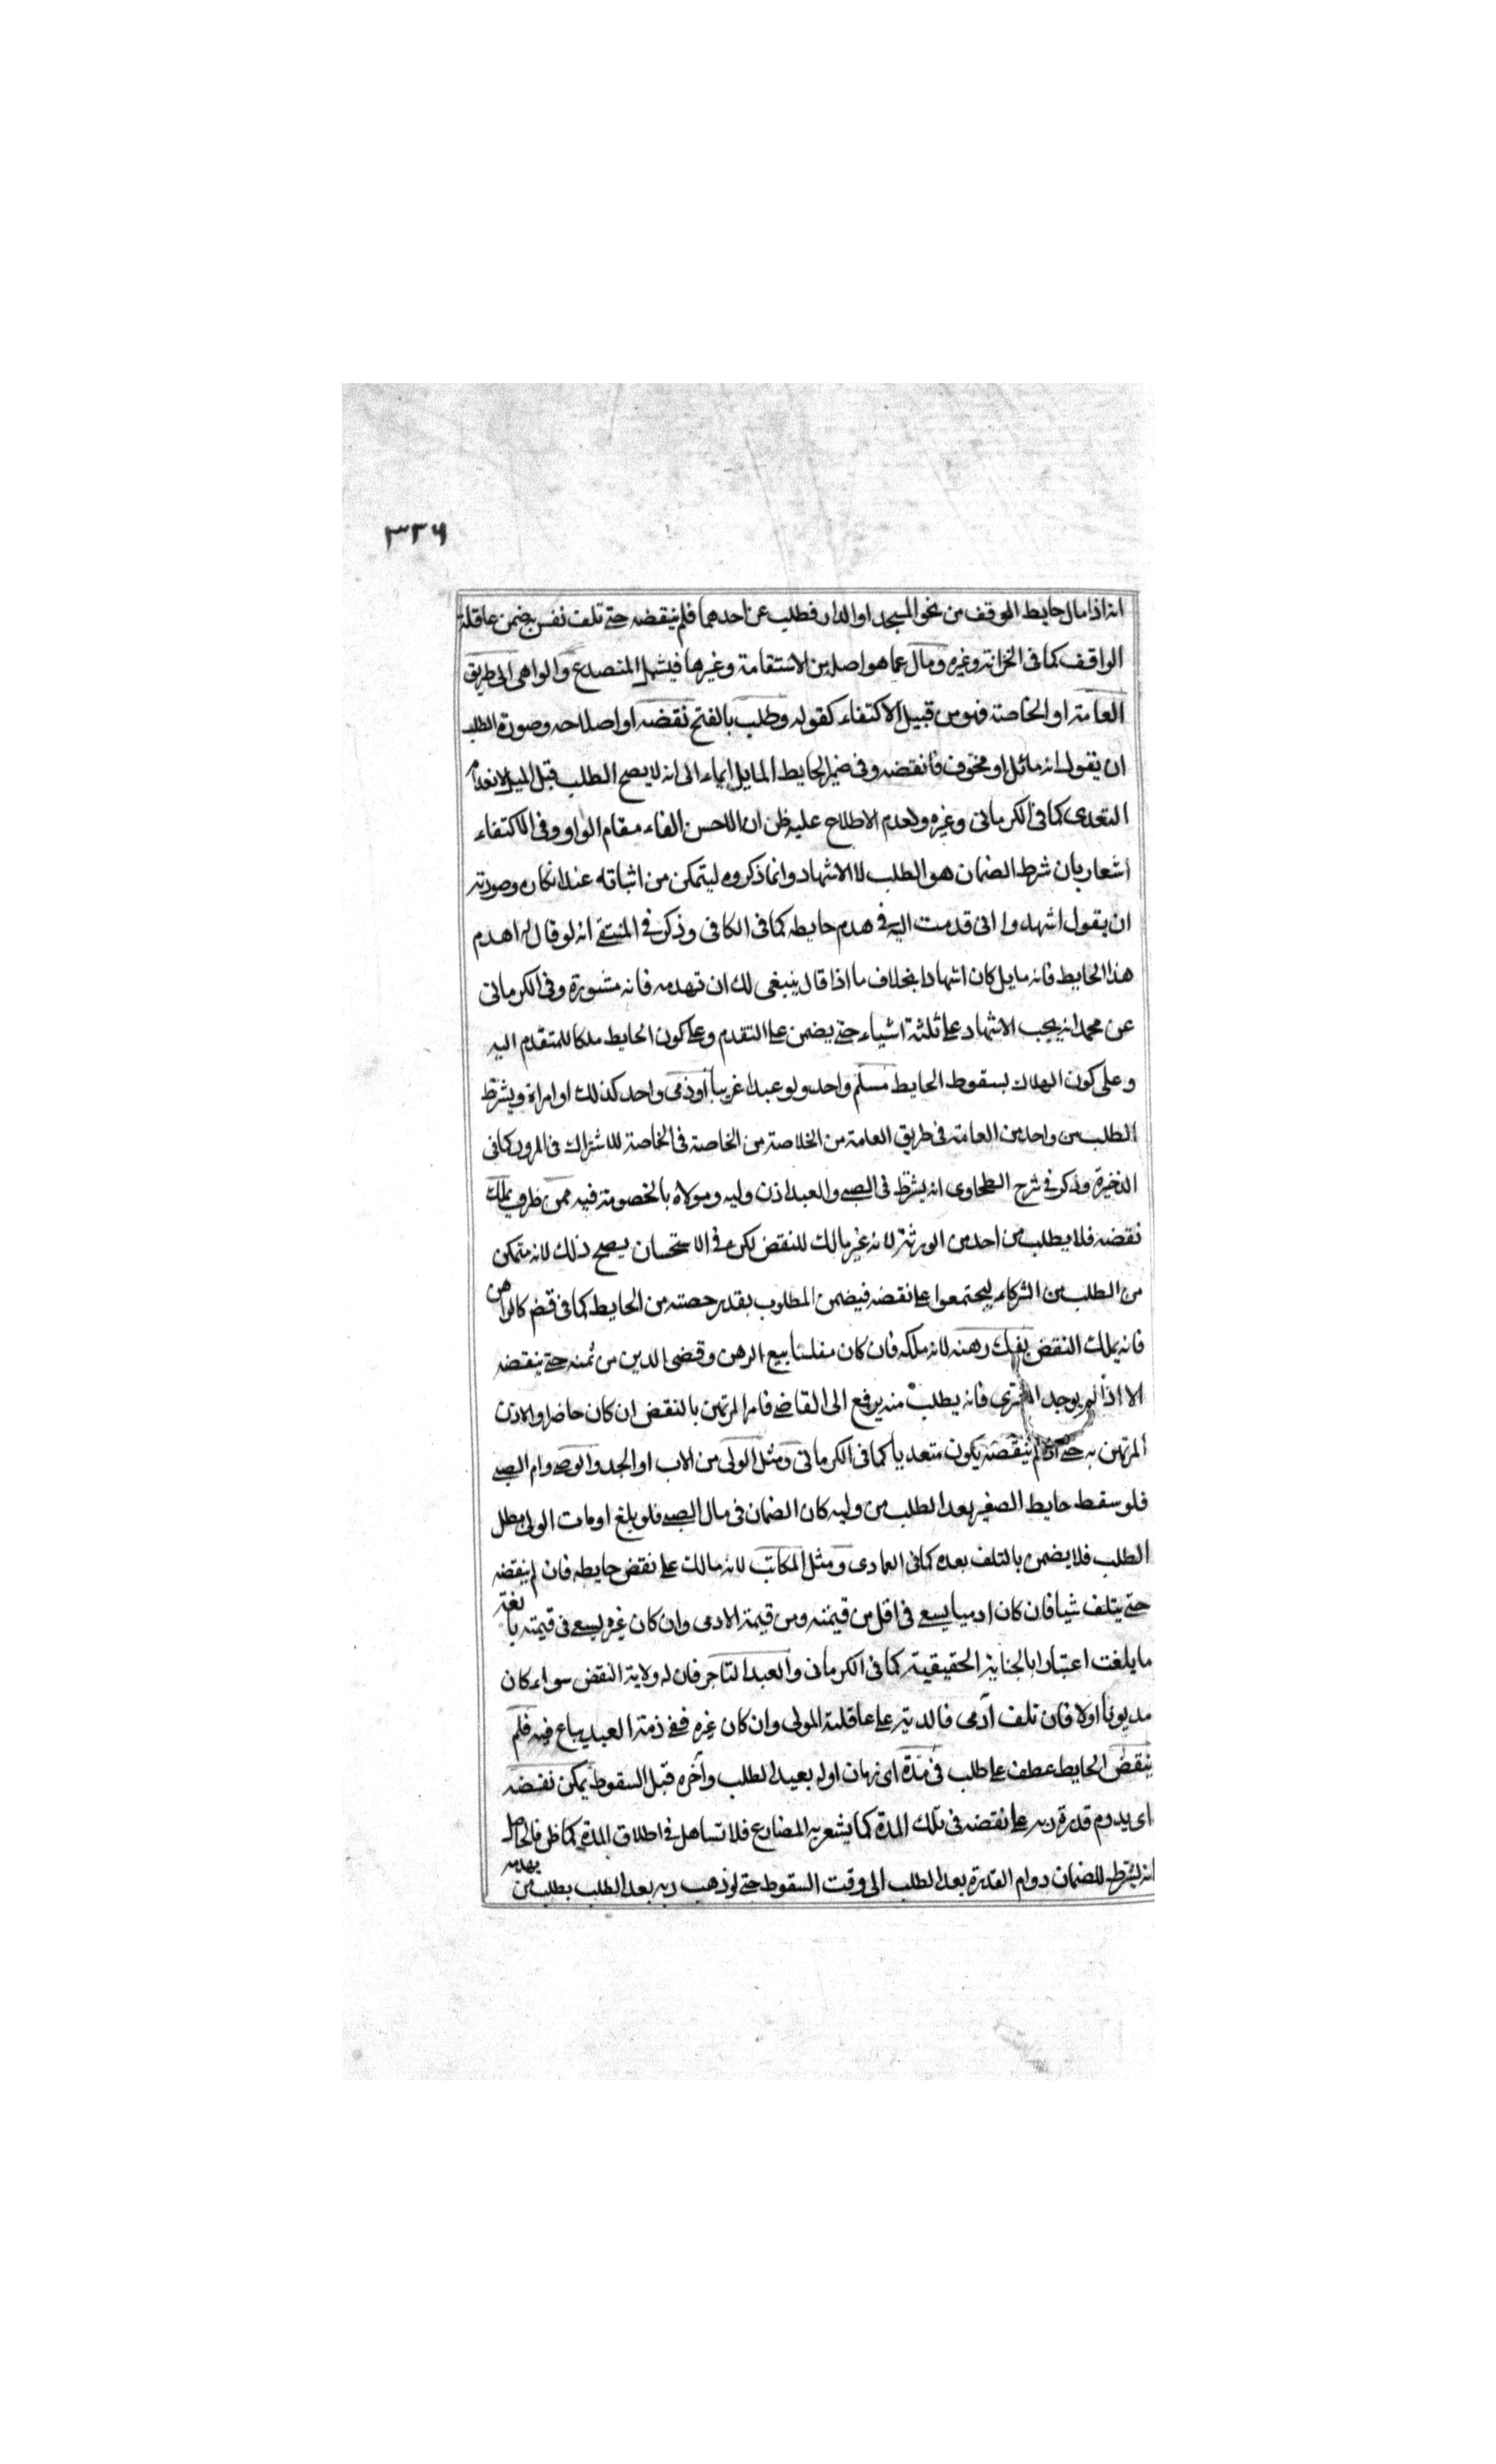 ٣٣٦
انه اذا مال حايط الوقف من نحو المسجد او الدار فطلب عن احدهما فلم ينقضه حتى تلف نفس يضمن عاقلة
الواقف كما فى الخزانة وغيره ومال عما هو اصله من الاستقامة وغيرها فيشمل المنصدع والواهى الى طريق
العامة او الخاصة فهو من قبيل الاكتفاء كقوله وطلب بالفتح نقضه او اصلاحه وصورة الطلب
ان يقول انه مائل او مخوف فانقضه وفى ضمير الحايط المايل ايماء الى انه لا يصح الطلب قبل الميل لانعدام
التعدى كما فى الكرمانى وغيره ولعدم الاطلاع عليه ظن ان الاحسن الفاء مقام الواو وفى الاكتفاء
اشعار بان شرط الضمان هو الطلب لا الاشهاد وانما ذكروه ليتمكن من اثباته عند انكاره وصورته
ان يقول اشهدوا انى قدمت اليه فى هدم حايطه كما فى الكافى وذكر فى المنتقى انه لو قال له اهدم
هذا الحايط فانه مايل كان اشهادا بخلاف ما اذا قال ينبغى لك ان تهدمه فانه مشورة وفى الكرمانى
عن محمد انه يجب الاشهاد على ثلثة اشياء حتى يضمن على التقدم وعلى كون الحايط ملكا للمتقدم اليه
وعلى كون الهلاك بسقوط الحايط مسلم واحد ولو عبدا غريبا او ذمى واحد كذلك او امراة ويشترط
الطلب من واحد من العامة فى طريق العامة من الخلاصة من الخاصة فى الخاصة للاشتراك فى المرور كما فى
الذخيرة وذكر فى شرح الطحاوى انه يشترط فى الصبى والعبد اذن وليه ومولاه بالخصومة فيه ممن ظرف يملك
نقضه فلا يطلب من احد من الورثة لانه غير مالك للنقض لكن فى الاستحسان يصح ذلك لانه متمكن
من الطلب من الشركاء ليجتمعوا على نقضه فيضمن المطلوب بقدر حصته من الحايط كما فى قضم كالراهن
فانه يملك النقض بفك رهنه لانه ملكه فان كان مفلسا بيع الرهن وقضى الدين من ثمنه حتى ينقضه
الا اذا لم يوجد المشترى فانه يطلب منه يرفع الى القاضى فامر المرتهن بالنقض ان كان حاضرا والا اذن
المرتهن به حتى اذا لم ينقضه يكون متعديا كما فى الكرمانى ومثل الولى من الاب او الجد والوصى وام الصبى
فلو سقط حايط الصغير بعد الطلب من وليه كان الضمان فى مال الصبى فلو بلغ او مات الولى بطل
الطلب فلا يضمن بالتلف بعده كما فى العمادى ومثل المكاتب لانه مالك على نقض حايطه فان لم ينقضه
حتى يتلف شيا فان كان ادميا يسعى فى اقل من قيمته ومن قيمة الادمى وان كان غيره يسعى فى قيمته بالغة
ما بلغت اعتبارا بالجناية الحقيقية كما فى الكرمانى والعبد التاجر فان له ولاية النقض سواء كان
مديونا اولا فان تلف آدمى فالدية على عاقلة المولى وان كان غيره ففى ذمة العبد يباع فيه فلم
ينقض الحايط عطف على طلب فى مدة اى زمان اوله بعيد الطلب وآخره قبل السقوط يمكن نقضه
اى يدوم قدرة ربه على نقضه فى تلك المدة كما يشعر به المضارع فلا تساهل فى اطلاق المدة كما ظن فالحاصل
انه يشترط للضمان دوام القدرة بعد الطلب الى وقت السقوط حتى لو ذهب ربه بعد الطلب بطلب من يهدمه